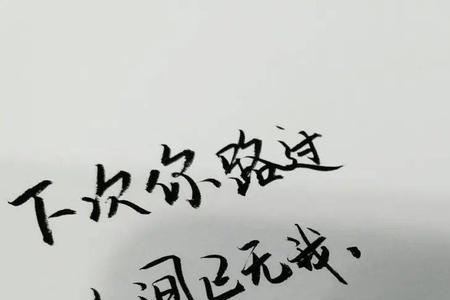 下次你路过
间已无我、